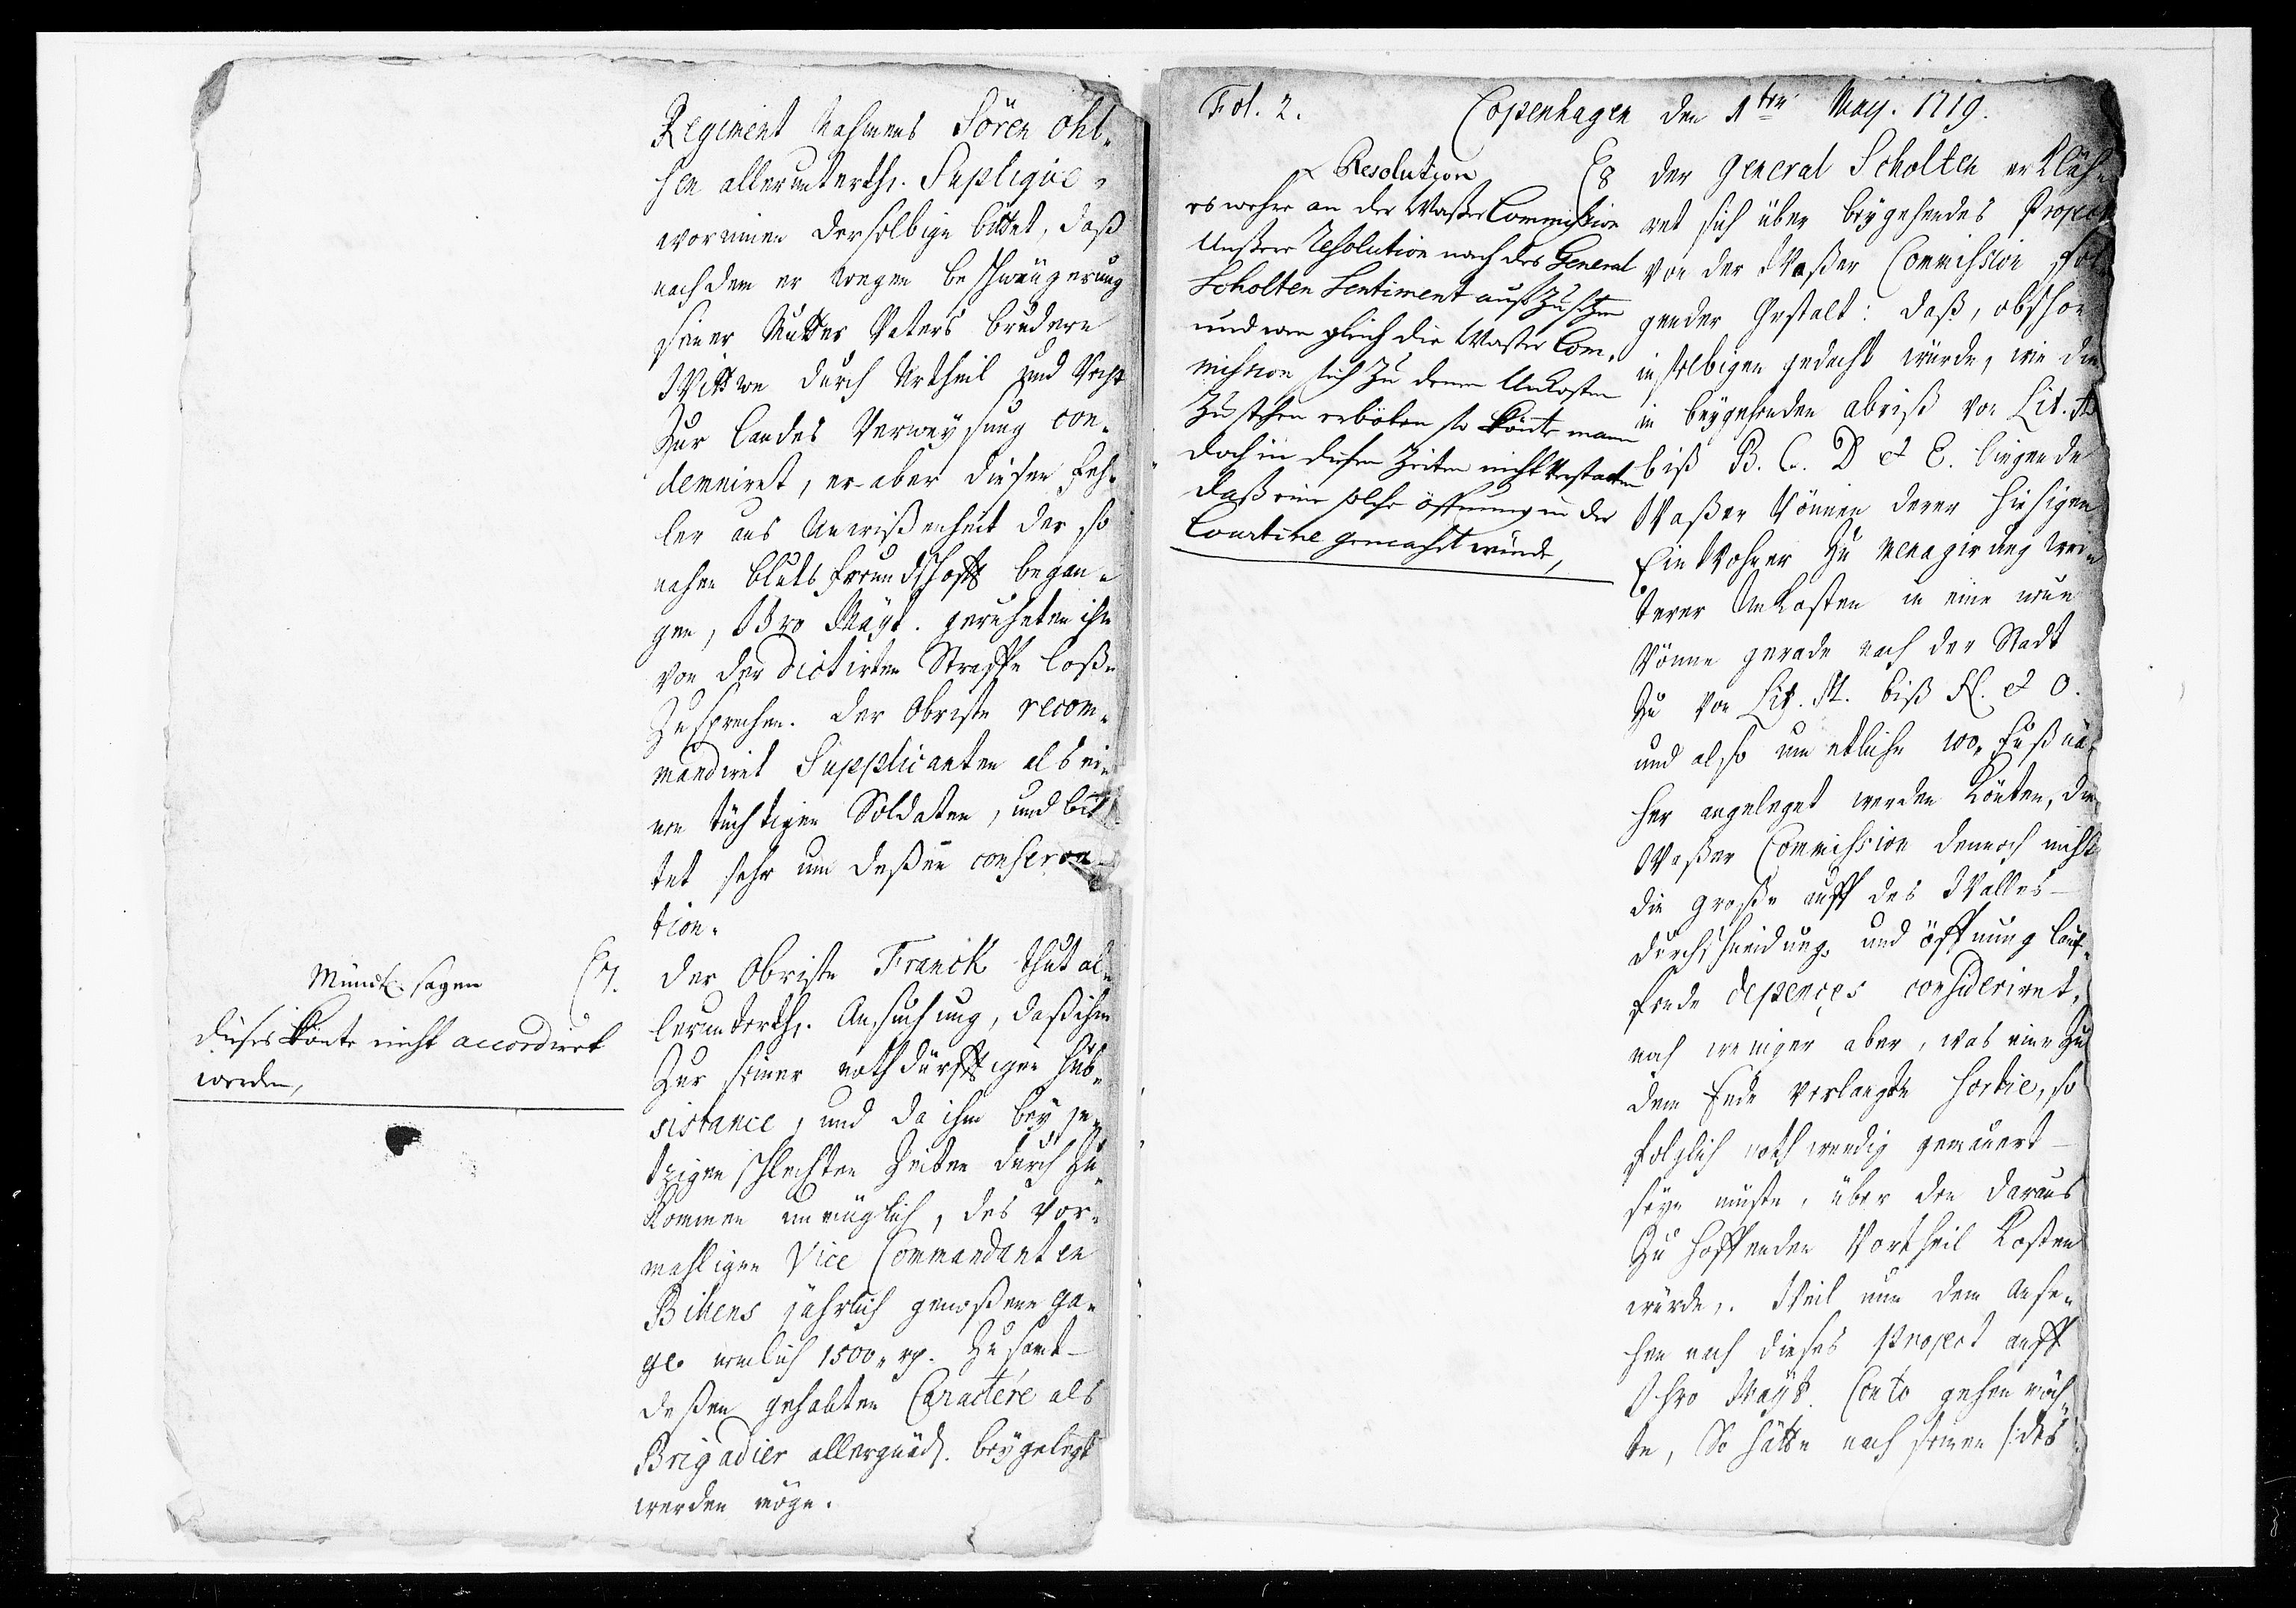 Regiment Nahmens Sören Ohl-
sen allerunterth. Suplique,
worinnen derselbige bittet, daß
nach dem er wegen beschwängerung
seiner Mutter Vaters Brudern
Wittwe durch Urtheil und Recht
Zur landes Verweysung con-
demniret, er aber diesen Feh-
ler aus Unwißenheit der so
nahen blutsfreundschafft began-
gen, Ihro Mayt. geruheten ihn
von der dictirten Straffe loß
Zusprechen. der Obriste recom-
mandiret Supplicanten als ei-
nen tüchtigen Soldaten, und bit-
tet sehr um deßen conserva-
tion.
Mündl. sagen
dieses könte nicht accordiret
werden,
7. der Obriste Franck thut al-
lerunterth. Ansuchung, daß ihm
Zur seiner nothdürfftigen sub-
sistance, und da ihm bey je-
tzigen schlechten Zeiten durch Zu-
kommen unmüglich, des vor-
mahligen Vice Commandanten
Bihens jährlich genoßene ga-
ge nemlich 1500 rp. Zusamt
deßen gehabten Caractére als
Brigadier allergnäd. beygelegt
werden möge.
Fol. 2.
Copenhagen den 1ten May. 1719.
Resolution
es wehre an der Waßer Commission
Unßere Resolution nach des General
Scholten Sentiment auß Zusetzen
und wen gleich die Waßer Com-
mission sich Zu denen Unkosten
Zustehen erböten so könte mann
doch in diesen Zeiten nicht verstatten
daß eine solche öffnung in der
Courtine gemacht würde,
8 der General Scholten erkläh-
ret sich über beygehendes Project
von der Waßer Commission fol-
gender Gestalt: daß, obschon
in selbigen gedacht würde, wie die
in beygehenden abriß von Lit. A
biß B. C. D et E. liegende
Waßer Rönnen derer hiesigen
Einwohner Zu menagirung wei-
terer Unkosten in eine neue
Rönne gerade nach der Stadt
Zu von Lit. A. biß H. et O.
und also um etliche 100 Fuß nä-
her angeleget werden könten, die
Waßer Commission dennoch nicht
die große auff des Walles
durchschneidung und öffnung lauf-
fende depences consideriret,
noch weniger aber, was eine Zu
dem Ende verlangte sortie, so
folglich nothwendig gemauert
seyn müste, über den daraus
Zu hoffenden Vortheil kosten
würde. Weil nun dem Anse-
hen nach dieses Project auff
Ihro Mayt. Conto gehen möch-
te, So hätte nach seinen /:des